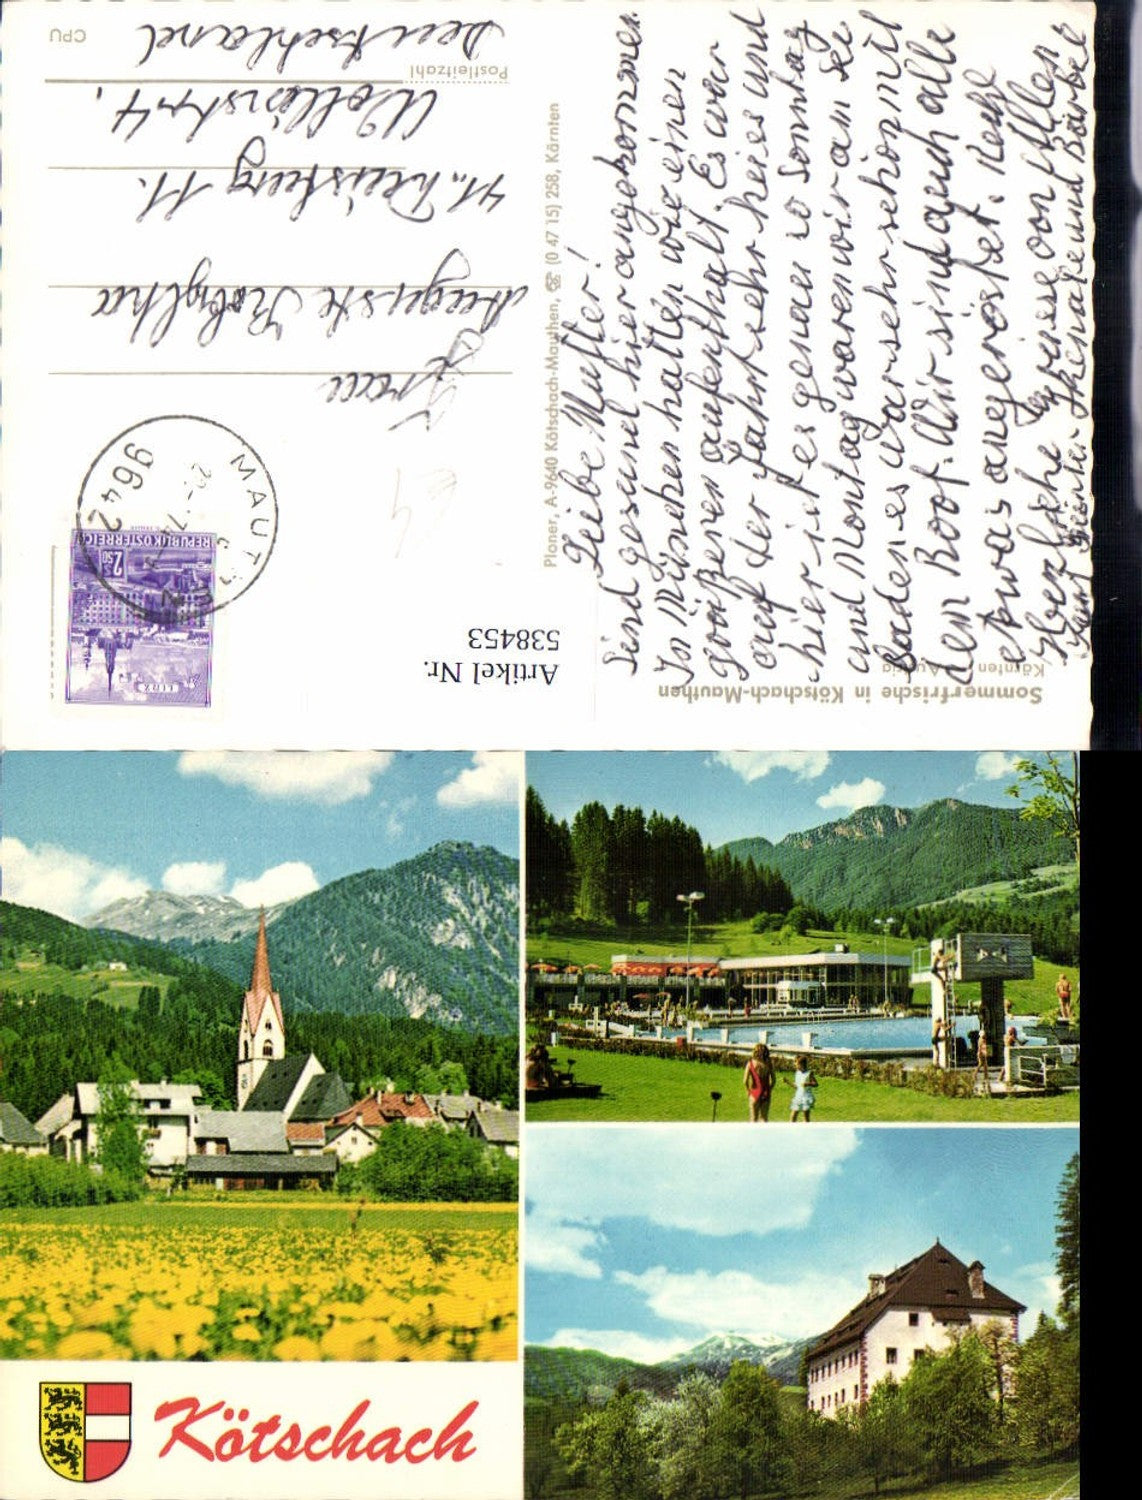 Liebe Mutter!
Sind gesund hier angekommen.
In München hatten wir einen
großen aufenthalt. Es war
auf der Fahrt sehr heies und
hier ist es genau so Sonntag
und Montag waren wir am See
baden es war sehr schön mit
dem Boot. Wir sind auch alle
etwas angeröstet. Recht
Herzliche Grüsse von Allen
und Bärbel
Sommerfrische in Kötschach-Mauthen
Kärnten Austria
Ploner, A-9640 Kötschach-Mauthen, ☏ (0 47 15) 258, Kärnten
Artikel Nr.
538453
GRAZ
S 2.50
REPUBLIK ÖSTERREICH
MAUTHEN
9642
Frau
Auguste
41. Duisburg 11.
Postleitzahl
Deutschland
CPU
Kötschach